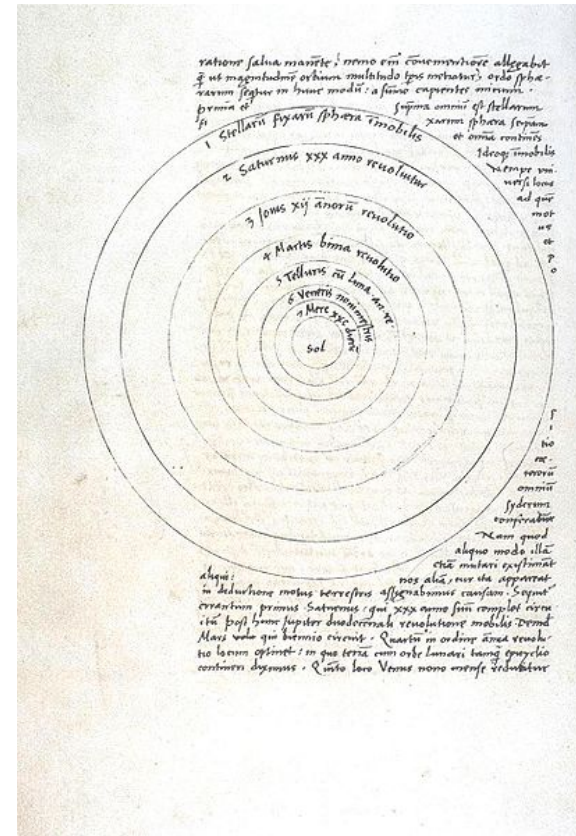 ratione salua manente, nemo em̄ convenientiorē allegabit
q̄ ut magnitudinē orbium multitudo tp̄is metiatur, ordo sphæ-
rarum sequitur in hunc modū: a sum̄o capientes initium.
prima et suprema omniū est stellarum
fi xarum sphæra seipsam
et omnia continēs
Ideoq̄ īmobilis
nempe uni
uersi locus
ad quē
mot
us
et
p
o
1 Stellarū fixarū sphæra īmobilis
2 Saturnus xxx anno reuoluitur
3 Jouis xij annorū reuolutio
4 Martis bima reuolutio
5 Telluris cū luna an. re.
6 Veneris nonimestris
7 Merc xxc dierū
Sol
s
i
tio
cæ-
terorū
omniū
syderum
conferatur
Nam quod
aliquo modo illā
etiā mutari existimāt
aliqui: nos aliā, cur ita appareat
in deductione motus terrestris assignabimus causam. Sequit̄
errantium primus Saturnus: qui xxx anno suū complet circu
itū post hunc Jupiter duodecennali reuolutione mobilis Deinde
Mars qui biennio circuit. Quartū in ordine annua reuolu-
tio locum optinet: in quo terrā cum orbe lunari tanq̄ epicyclio
contineri diximus. Quinto loco Venus nono mense reducitur